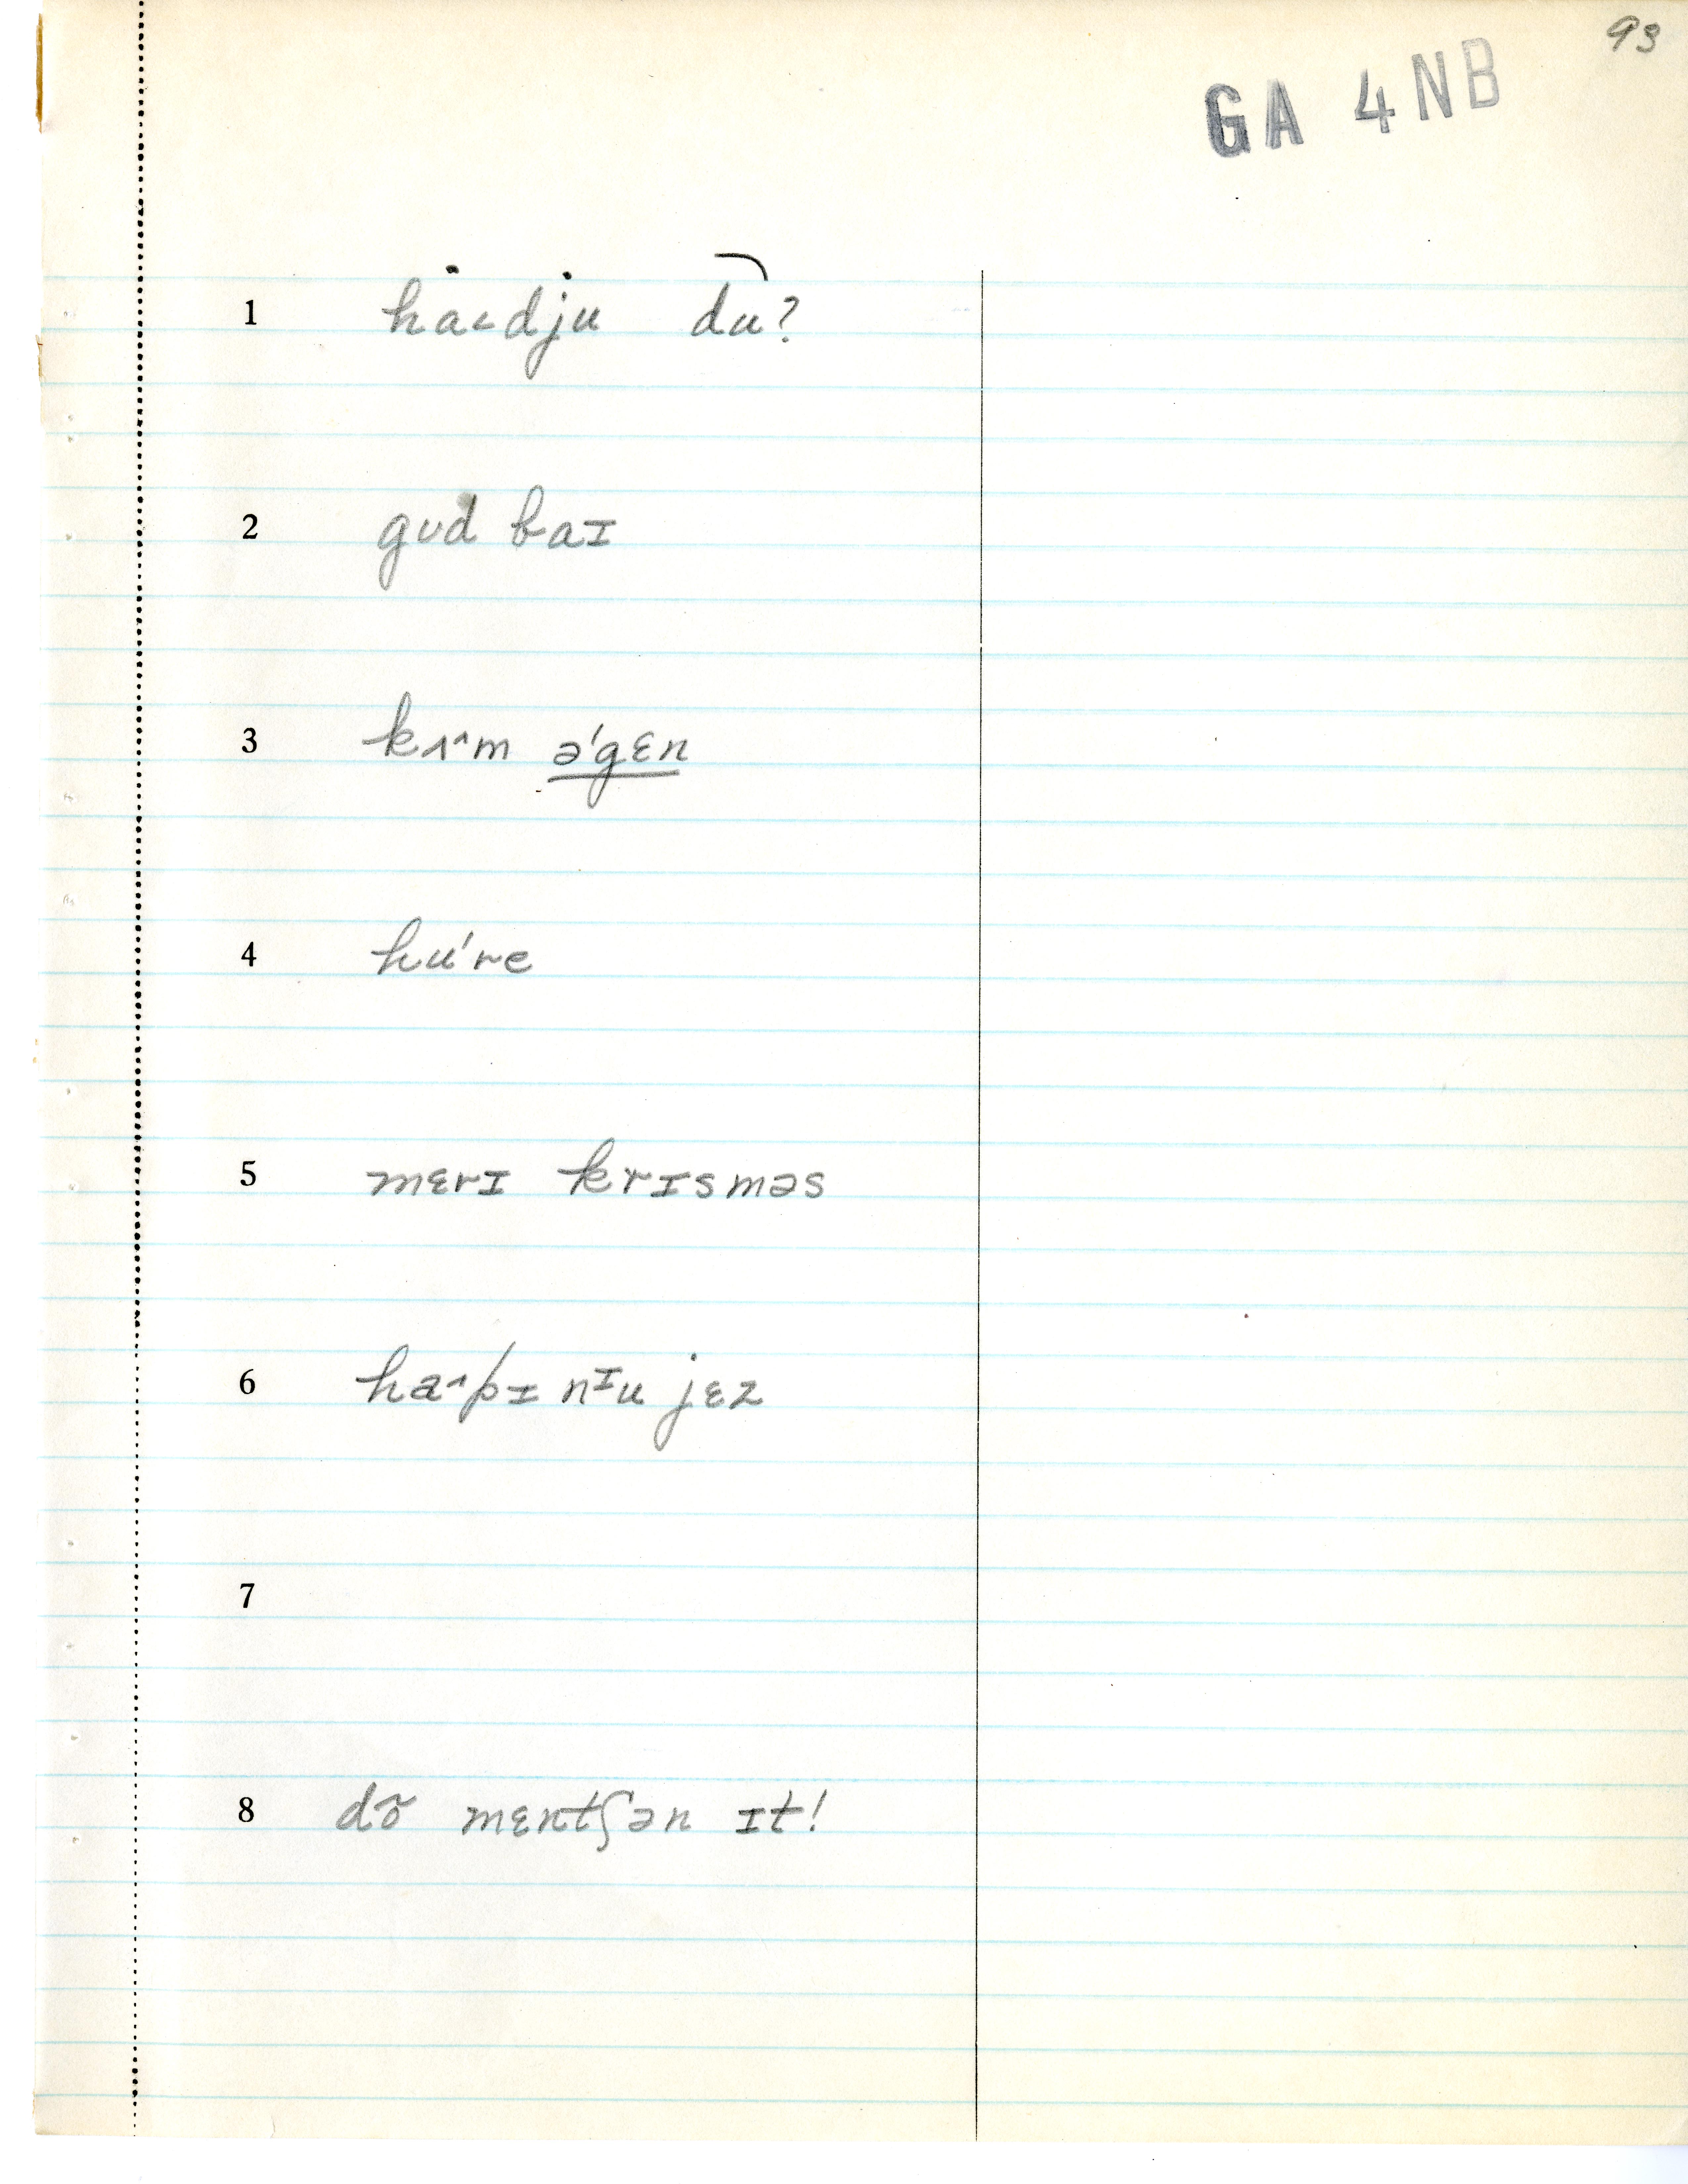 93
GA 4NB
1 ha˂dju du?
2 gʊd baɪ
3 kʌ˄m ə'gɛn
4 hu're
5 mɛrɪ krɪsməs
6 ha˄pɪ nɪu jɛz
7
8 dõ mɛntʃən ɪt!